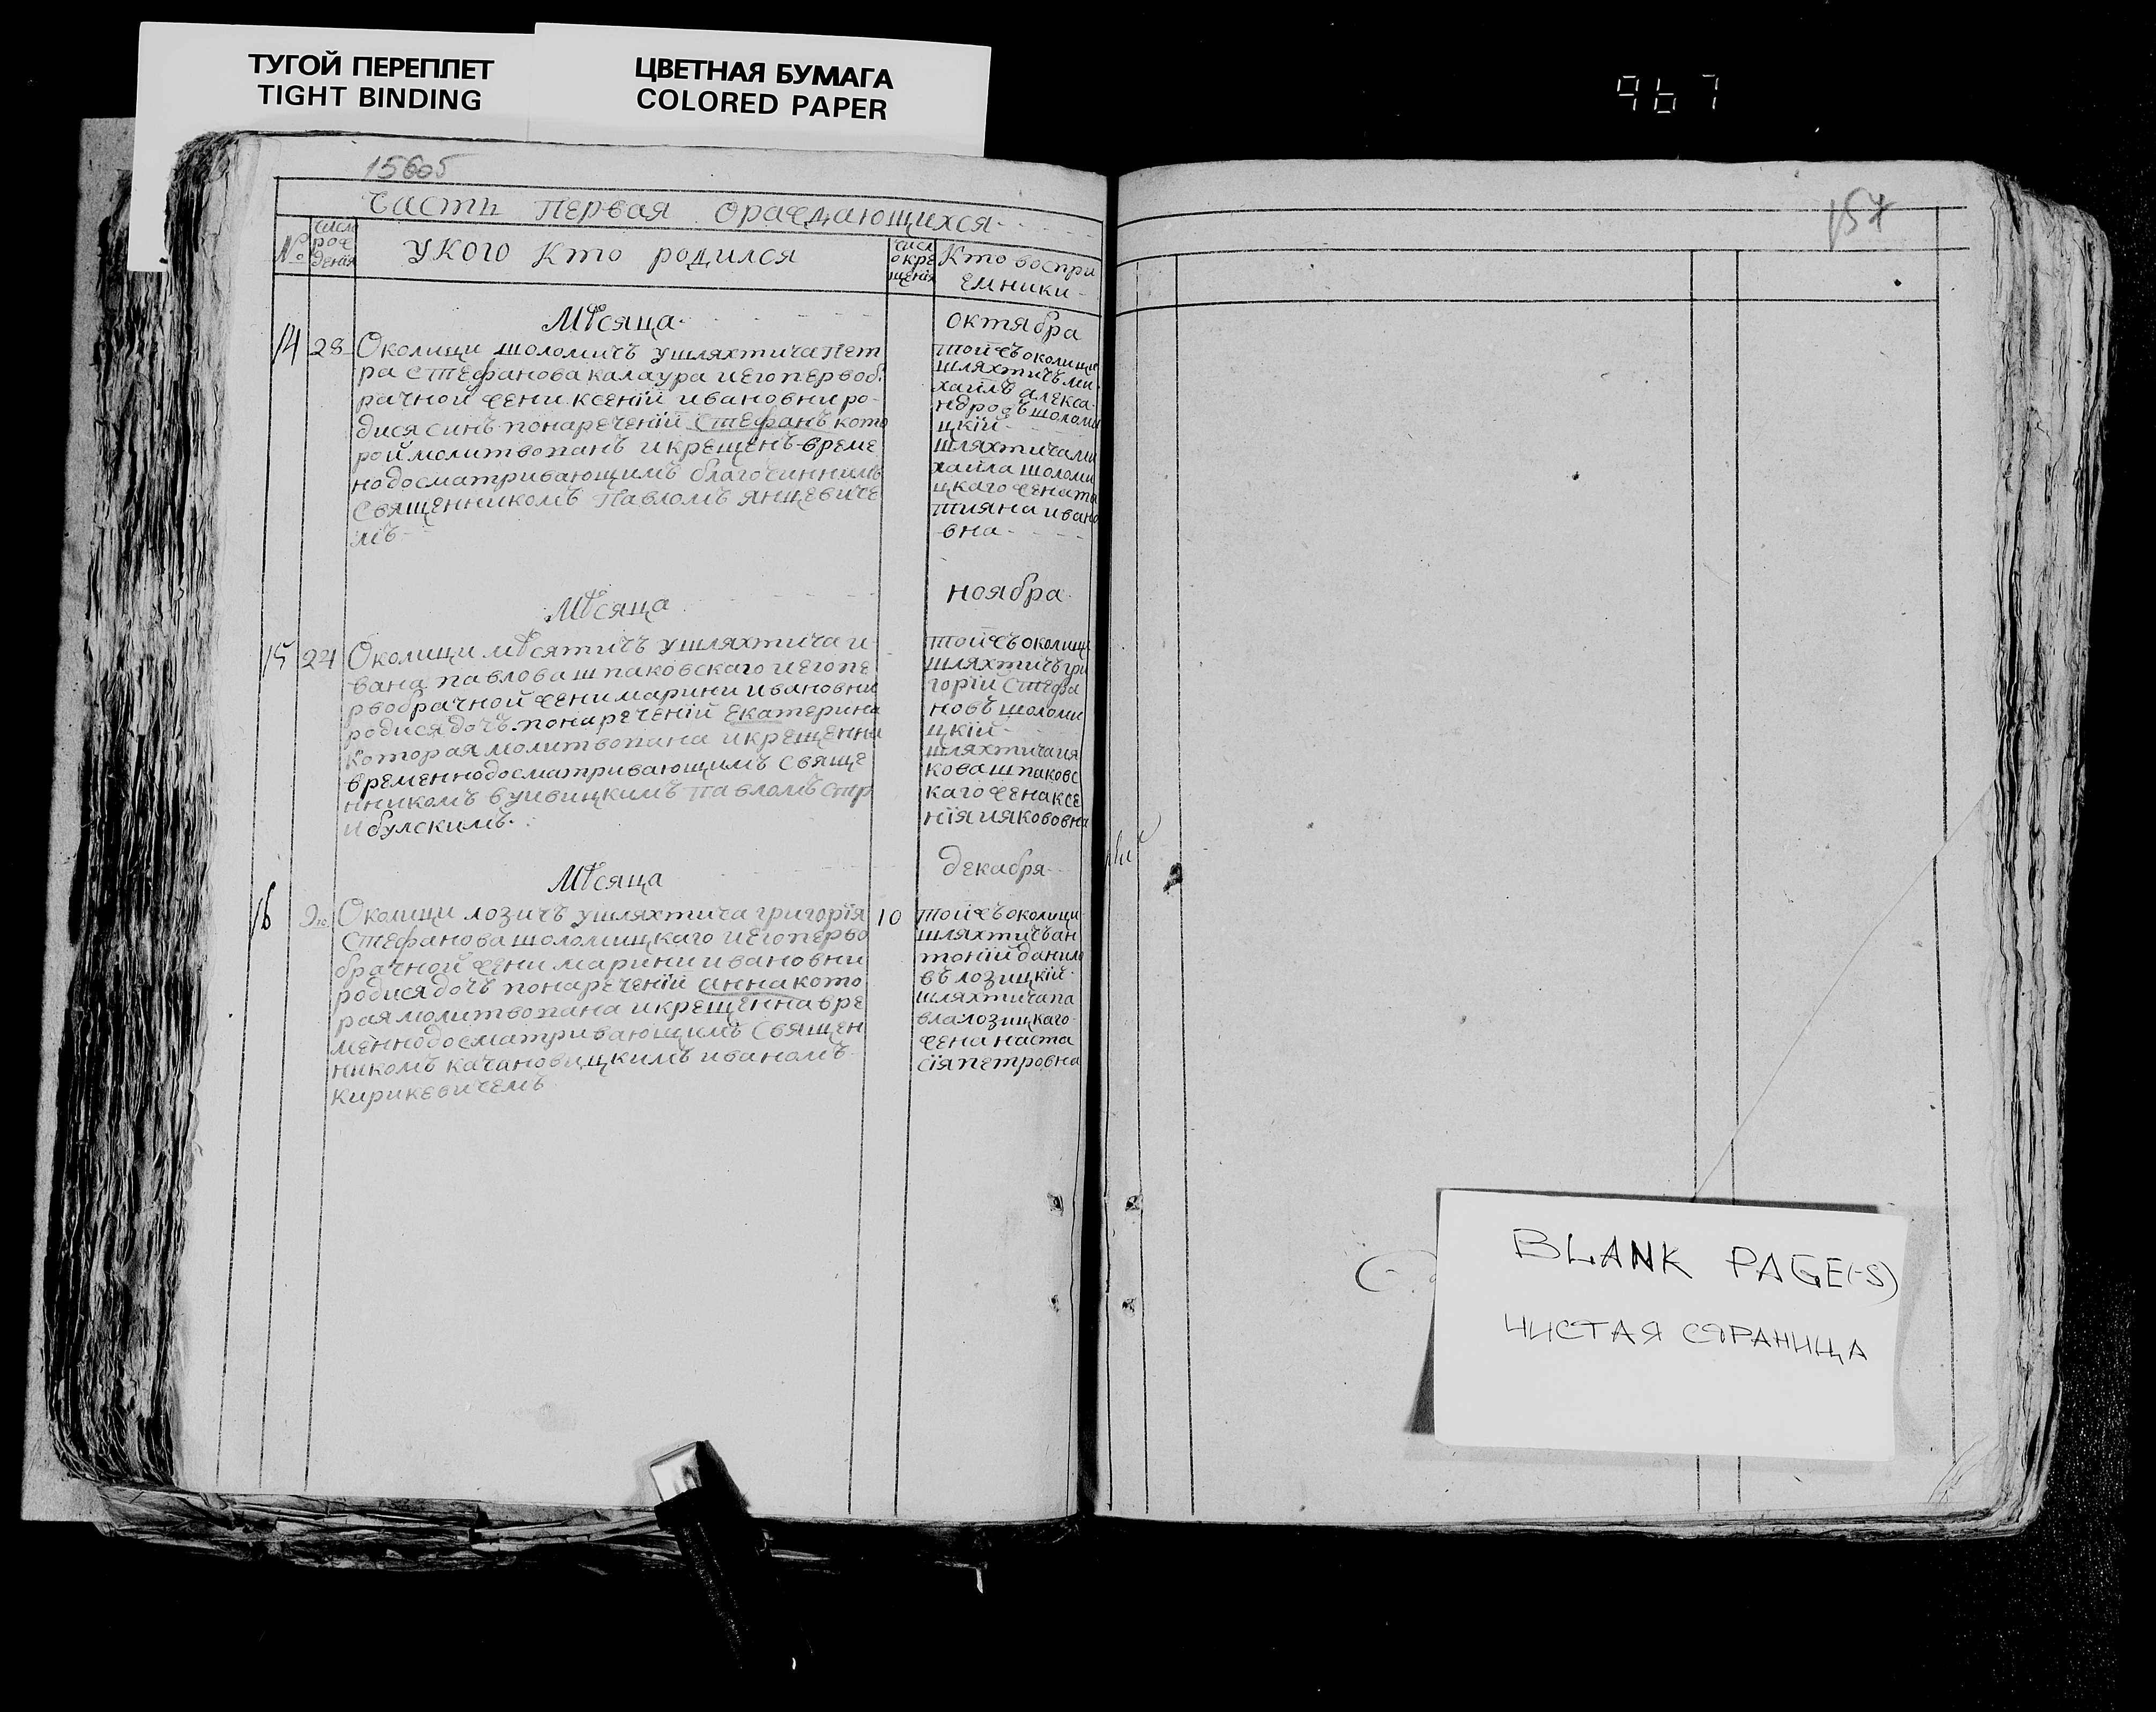 ТУГОЙ ПЕРЕПЛЕТ
TIGHT BINDING
ЦВЕТНАЯ БУМАГА
COLORED PAPER
967
15605
157
Часть первая ораждающихся
№
число рождения
укого кто родился
числ окрещения
Кто воспри
емники
Мѣсяца
октября
14
28
Околици шоломичъ ушляхтича Пет
ра стефанова калаура иего первоб
рачной жени ксеній ивановни ро
дися синъ понареченій Стефанъ кото
рой молитвопанъ икрещенъ време
нодосматривающимъ благочиннимъ
священникомъ Павломъ янцевиче
мъ
тойжъ околици
шляхтичъ ми
хаилъ алекса
ндровъ шоломи
цкій
шляхтича ми
хаила шоломи
цкаго жена та
тияна ивано
вна
Мѣсяца
ноября
15
24
Околици мѣсятичъ ушляхтича и
вана павлова шпаковскаго иегопе
рвобрачной жени марини ивановни
родися дочъ понареченій Екатерина
которая молитвопана икрещенна
временнодосматривающимъ свяще
нникомъ вуивицкимъ павломъ стр
и булскимъ
тойжъ околици
шляхтичъ гри
горій Стефа
новъ шоломи
цкій
шляхтича ия
кова шпаковс
каго жена ксе
нія ияковoвна
Мѣсяца
декабря
16
9
Околици лозичъ ушляхтича григорія
Стефанова шоломицкаго иего перво
брачной жени марини ивановни
родися дочъ понареченій анна кото
рая молитвопана икрещенна вре
меннодосматривающимъ священ
никомъ качановицкимъ иваномъ
кирикевичемъ
10
тойжъ околици
шляхтичъ ан
тоній данило
въ лозицкій
шляхтича па
вла лозицкаго
жена наста
сія петровна
BLANK PAGE(-S)
ЧИСТАЯ СТРАНИЦА